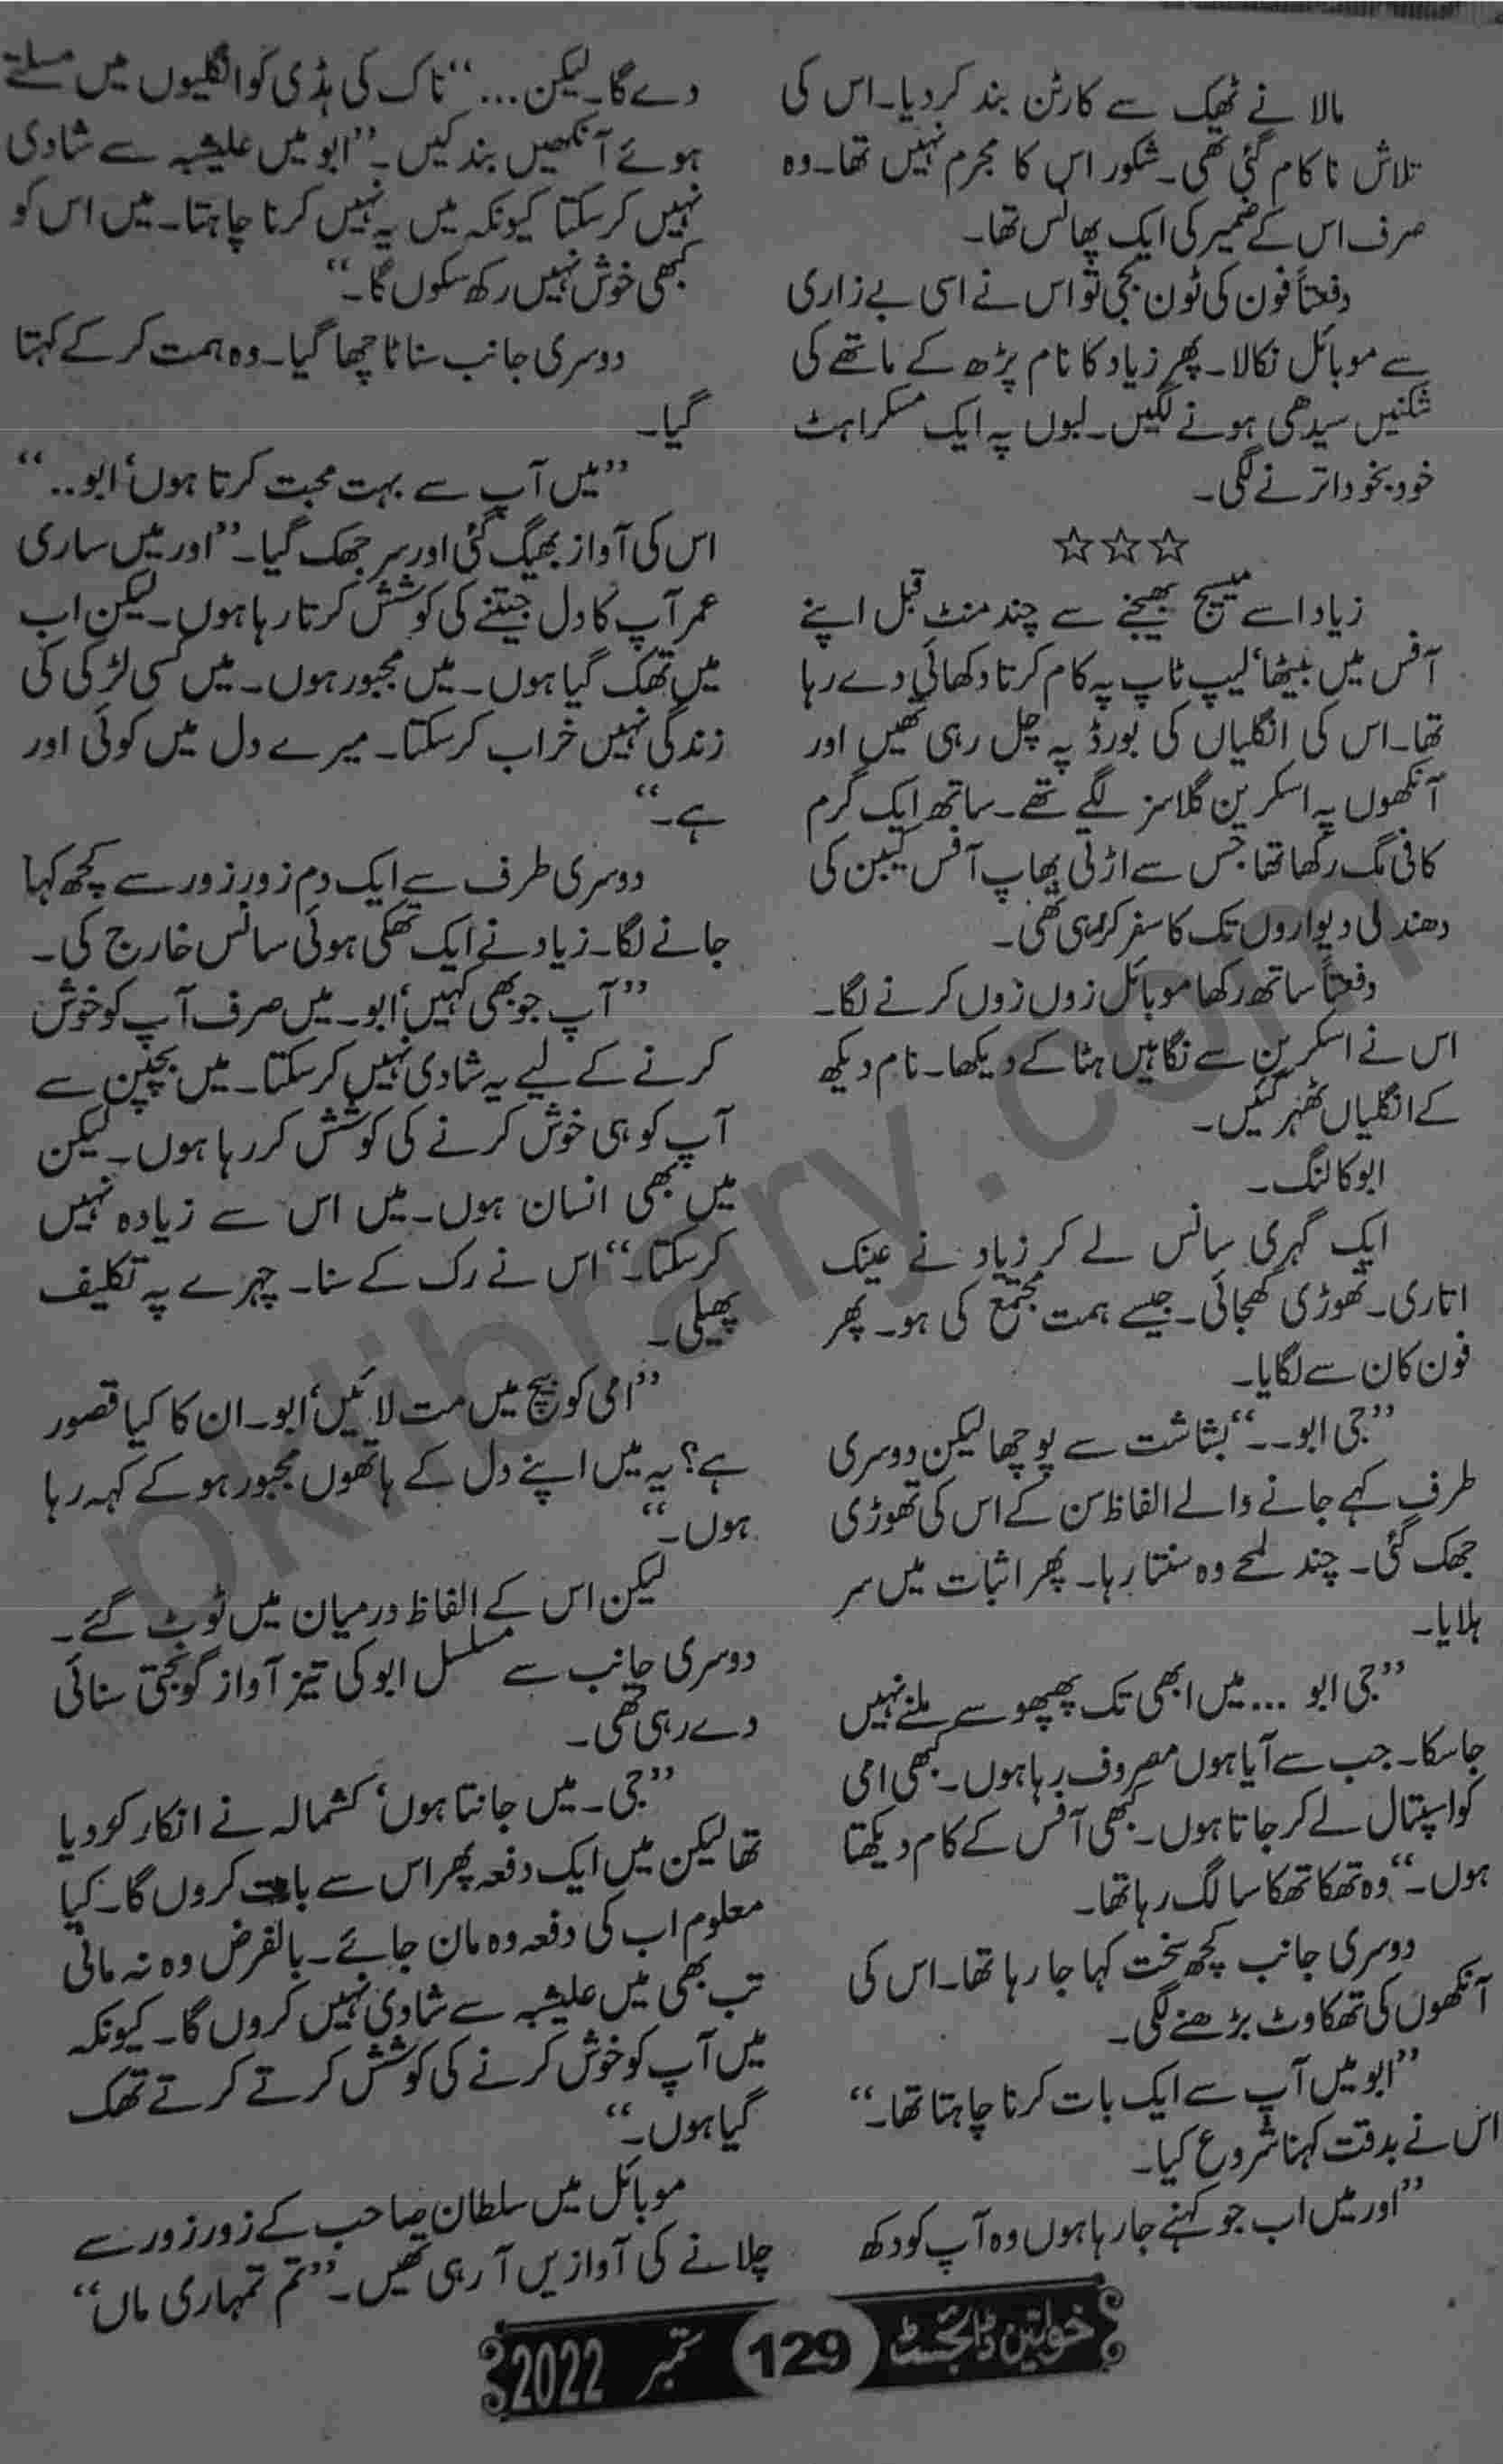 مالا نے ٹھیک سے کارٹن بند کر دیا۔ اس کی
تلاش ناکام گئی تھی۔ شکور اس کا مجرم نہیں تھا۔ وہ
صرف اس کے ضمیر کی ایک پھانس تھا۔
دفعتاً فون کی ٹون بجی تو اس نے اسی بے زاری
سے موبائل نکالا۔ پھر زیاد کا نام پڑھ کے ماتھے کی
شکنیں سیدھی ہونے لگیں۔ لبوں پہ ایک مسکراہٹ
خود بخود اترنے لگی۔
☆☆☆
زیاد اسے میسج بھیجنے سے چند منٹ قبل اپنے
آفس میں بیٹھا، لیپ ٹاپ پہ کام کرتا دکھائی دے رہا
تھا۔ اس کی انگلیاں کی بورڈ پہ چل رہی تھیں اور
آنکھوں پہ اسکرین گلاسز لگے تھے۔ ساتھ ایک گرم
کافی مگ رکھا تھا جس سے اڑتی بھاپ آفس کیبن کی
دھندلی دیواروں تک کا سفر کر رہی تھی۔
دفعتاً ساتھ رکھا موبائل زوں زوں کرنے لگا۔
اس نے اسکرین سے نگاہیں ہٹا کے دیکھا۔ نام دیکھ
کے انگلیاں ٹھہر گئیں۔
ابو کالنگ۔
ایک گہری سانس لے کر زیاد نے عینک
اتاری۔ تھوڑی کھجائی۔ جیسے ہمت مجتمع کی ہو۔ پھر
فون کان سے لگایا۔
”جی ابو۔۔“ بشاشت سے پوچھا لیکن دوسری
طرف کہے جانے والے الفاظ سن کے اس کی تھوڑی
جھک گئی۔ چند لمحے وہ سنتا رہا۔ پھر اثبات میں سر
ہلایا۔
”جی ابو ... میں ابھی تک پھپھو سے ملنے نہیں
جا سکا۔ جب سے آیا ہوں مصروف رہا ہوں۔ کبھی امی
کو اسپتال لے کر جاتا ہوں۔ کبھی آفس کے کام دیکھتا
ہوں۔“ وہ تھکا تھکا سا لگ رہا تھا۔
دوسری جانب کچھ سخت کہا جا رہا تھا۔ اس کی
آنکھوں کی تھکاوٹ بڑھنے لگی۔
”ابو میں آپ سے ایک بات کرنا چاہتا تھا۔“
اس نے بدقت کہنا شروع کیا۔
”اور میں اب جو کہنے جا رہا ہوں وہ آپ کو دکھ
دے گا۔ لیکن ...“ ناک کی ہڈی کو انگلیوں میں مسلتے
ہوئے آنکھیں بند کیں۔ ”ابو میں علیشبہ سے شادی
نہیں کر سکتا کیونکہ میں یہ نہیں کرنا چاہتا۔ میں اس کو
کبھی خوش نہیں رکھ سکوں گا۔“
دوسری جانب سناٹا چھا گیا۔ وہ ہمت کر کے کہتا
گیا۔
”میں آپ سے بہت محبت کرتا ہوں، ابو..“
اس کی آواز بھیگ گئی اور سر جھک گیا۔ ”اور میں ساری
عمر آپ کا دل جیتنے کی کوشش کرتا رہا ہوں۔ لیکن اب
میں تھک گیا ہوں۔ میں مجبور ہوں۔ میں کسی لڑکی کی
زندگی نہیں خراب کر سکتا۔ میرے دل میں کوئی اور
ہے۔“
دوسری طرف سے ایک دم زور زور سے کچھ کہا
جانے لگا۔ زیاد نے ایک تھکی ہوئی سانس خارج کی۔
”آپ جو بھی کہیں، ابو۔ میں صرف آپ کو خوش
کرنے کے لیے یہ شادی نہیں کر سکتا۔ میں بچپن سے
آپ کو ہی خوش کرنے کی کوشش کر رہا ہوں۔ لیکن
میں بھی انسان ہوں۔ میں اس سے زیادہ نہیں
کر سکتا۔“ اس نے رک کے سنا۔ چہرے پہ تکلیف
پھیلی۔
”امی کو بیچ میں مت لائیں، ابو۔ ان کا کیا قصور
ہے؟ یہ میں اپنے دل کے ہاتھوں مجبور ہو کے کہہ رہا
ہوں۔“
لیکن اس کے الفاظ درمیان میں ٹوٹ گئے۔
دوسری جانب سے مسلسل ابو کی تیز آواز گونجتی سنائی
دے رہی تھی۔
”جی۔ میں جانتا ہوں، کشمالہ نے انکار کر دیا
تھا لیکن میں ایک دفعہ پھر اس سے بات کروں گا۔ کیا
معلوم اب کی دفعہ وہ مان جائے۔ بالفرض وہ نہ مانی
تب بھی میں علیشبہ سے شادی نہیں کروں گا۔ کیونکہ
میں آپ کو خوش کرنے کی کوشش کرتے کرتے تھک
گیا ہوں۔“
موبائل میں سلطان صاحب کے زور زور سے
چلانے کی آوازیں آ رہی تھیں۔ ”تم تمہاری ماں“
خواتین ڈائجسٹ 129 ستمبر 2022
pklibrary.com